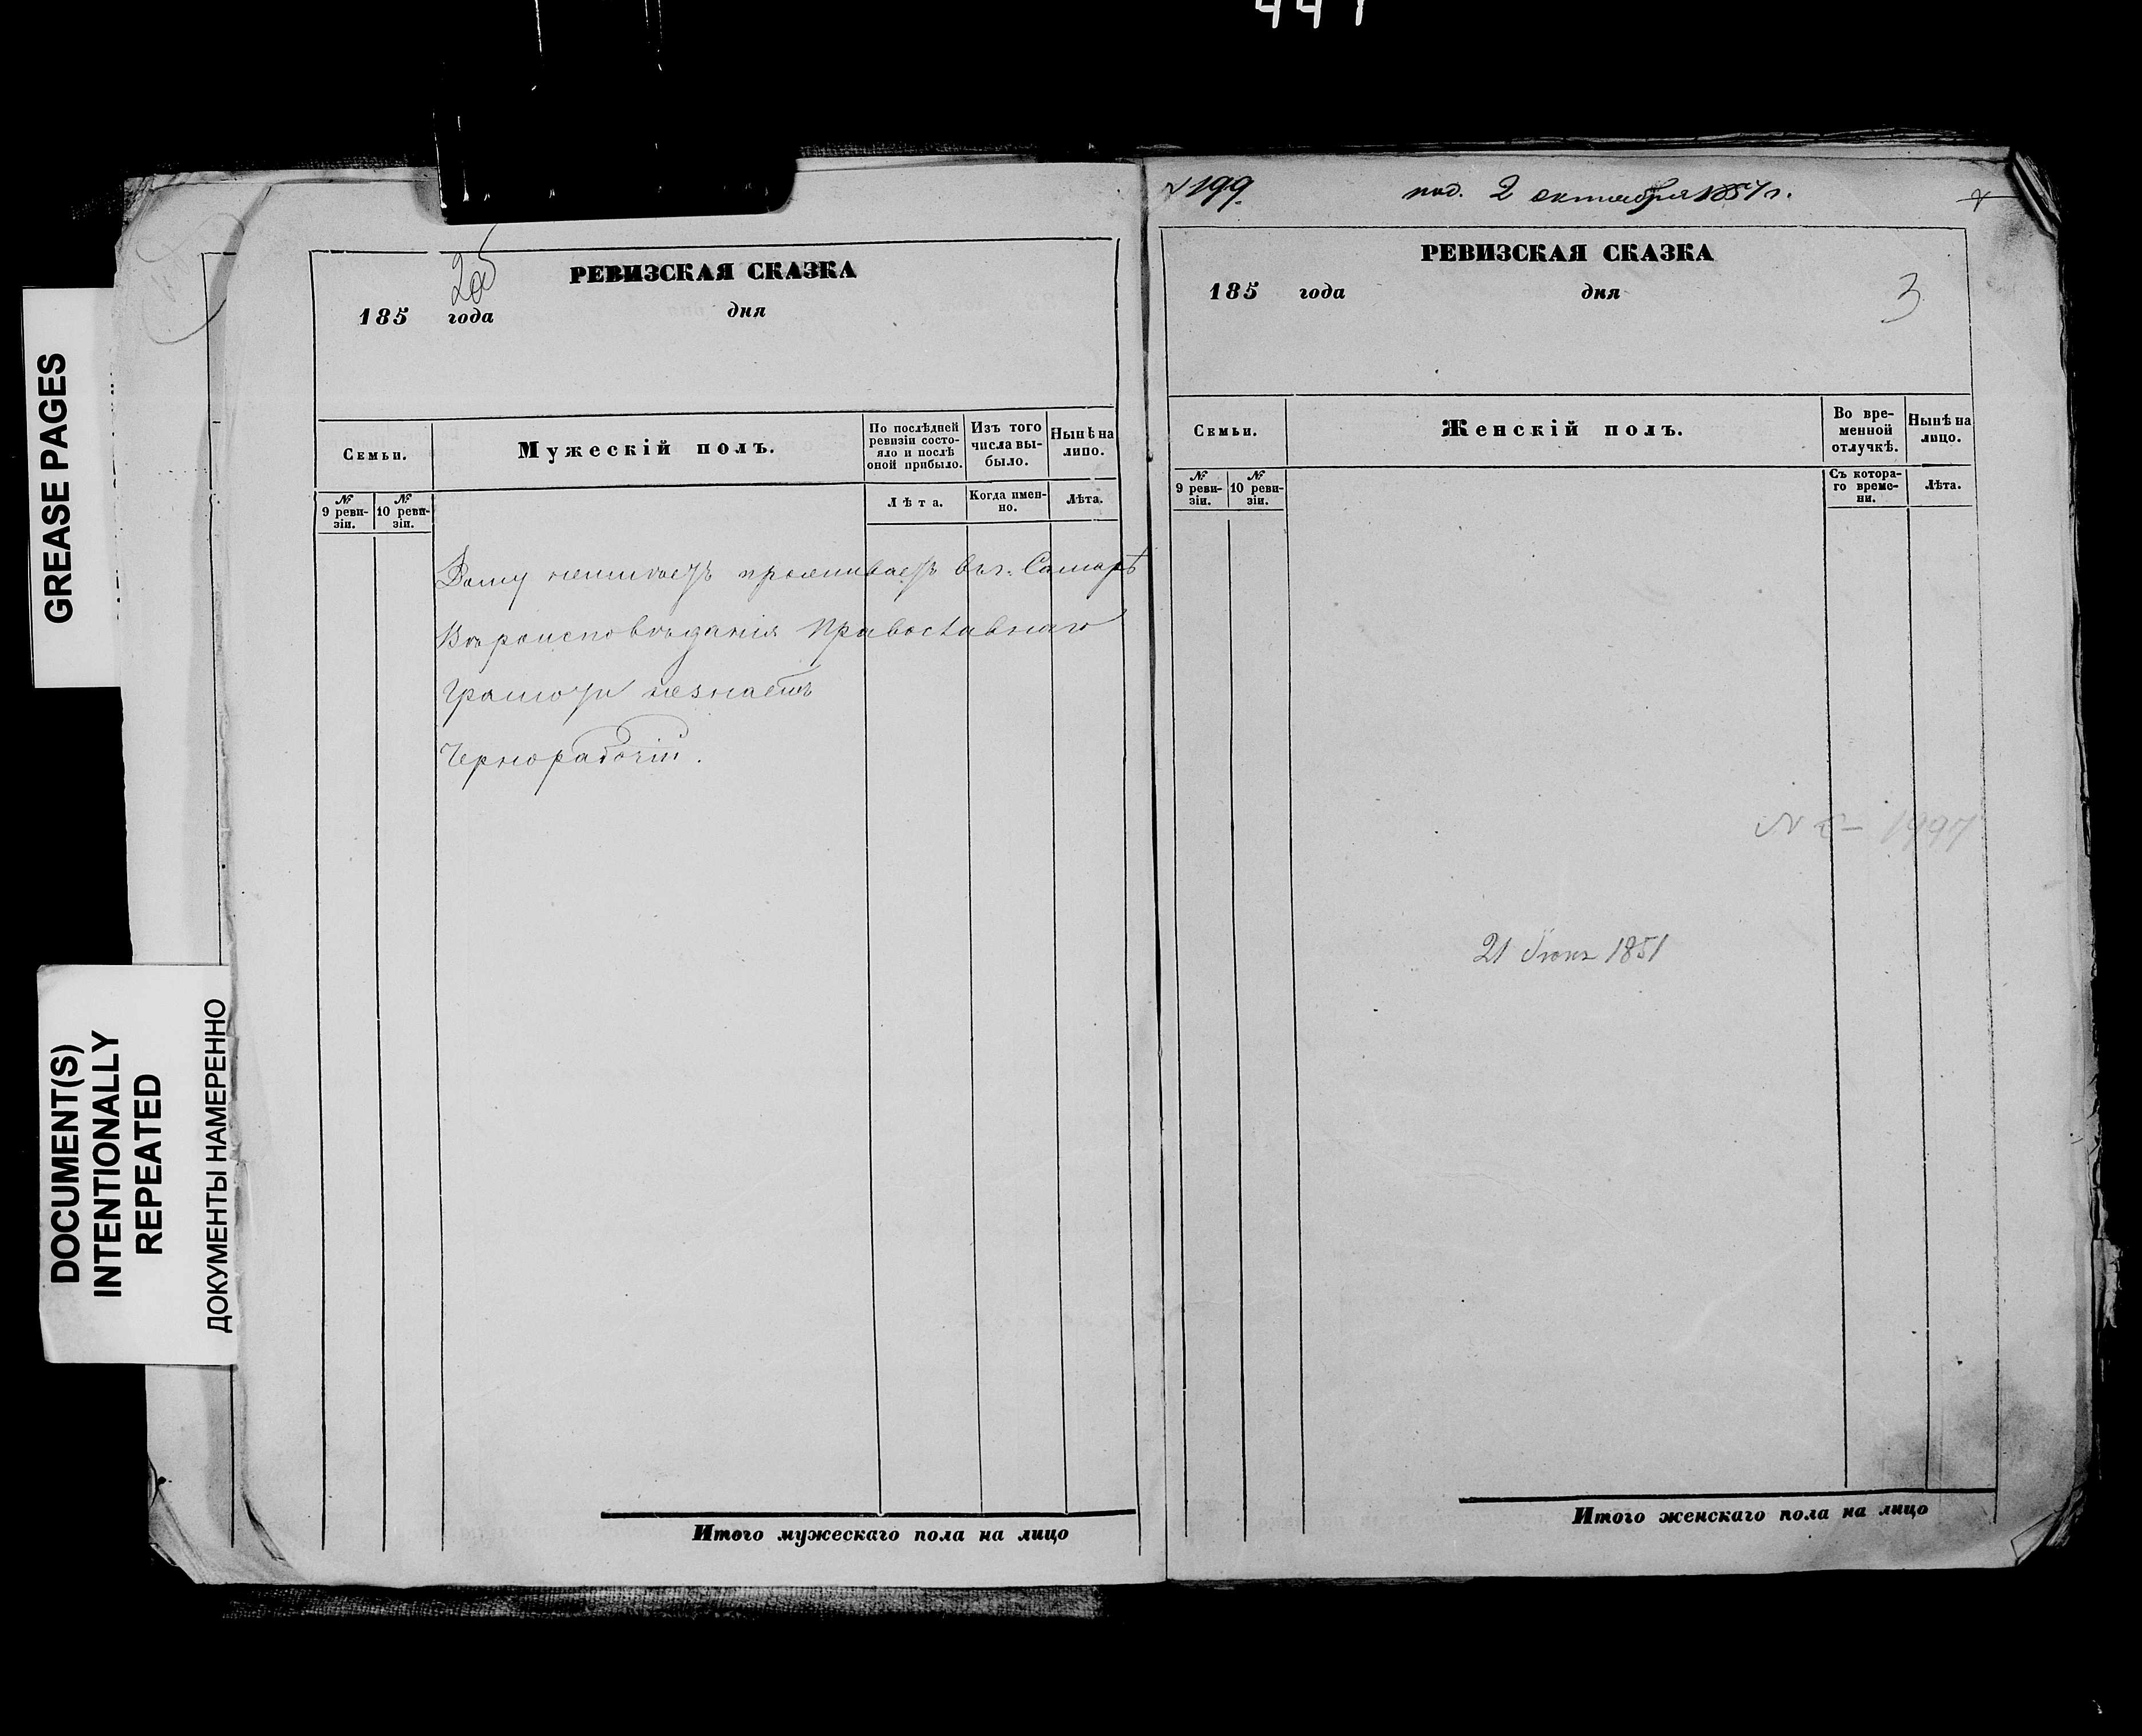 447
GREASE PAGES
DOCUMENT(S)
INTENTIONALLY
REPEATED
ДОКУМЕНТЫ НАМЕРЕННО
РЕВИЗСКАЯ СКАЗКА
185 года дня
Семьи.
Мужескій полъ.
По послѣдней
ревизіи состо-
яло и послѣ
оной прибыло.
Изъ того
числа вы-
было.
Нынѣ на
лицо.
№
9 реви-
зіи.
№
10 реви-
зіи.
Лѣта.
Когда имен-
но.
Лѣта.
Дому неимѣетъ проживаетъ въ г. Самарѣ
Вѣроисповѣданія Православнаго
Грамоты незнаетъ
Чернорабочій.
Итого мужескаго пола на лицо
№ 199. под. 2 октября 1857 г.
РЕВИЗСКАЯ СКАЗКА
185 года дня
3
Семьи.
Женскій полъ.
Во вре-
менной
отлучкѣ.
Нынѣ на
лицо.
№
9 реви-
зіи.
№
10 реви-
зіи.
Съ котора-
го време-
ни.
Лѣта.
1997
21 Іюня 1851
Итого женскаго пола на лицо